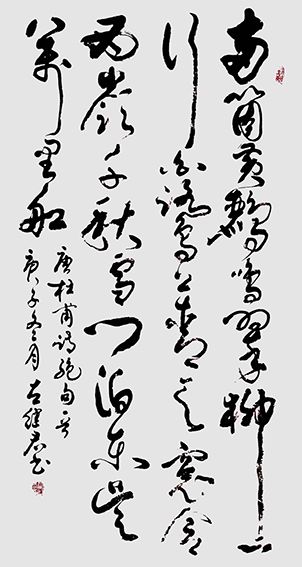 兩箇黃鸝鳴翠柳一
行白鷺上青天窗含
西嶺千秋雪門泊東吳
萬里船
唐杜甫詩絕句
庚子冬月